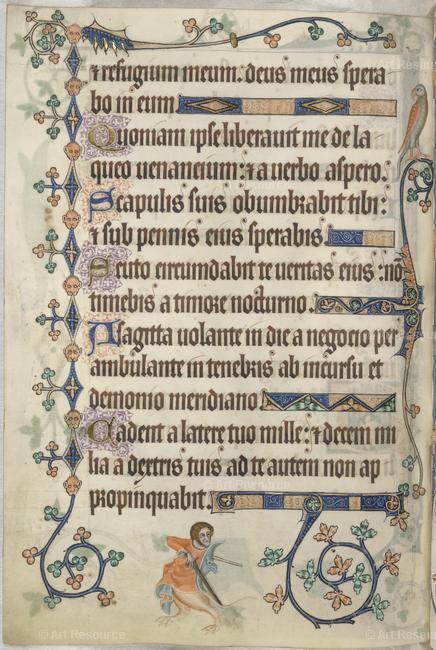 ⁊ refugium meum: deus meus spera
bo in eum
Quoniam ipse liberauit me de la
queo uenancium: ⁊ a uerbo aspero.
Scapulis suis obumbrabit tibi:
⁊ sub pennis eius sperabis.
Scuto circumdabit te ueritas eius: nō
timebis a timore nocturno.
A sagitta uolante in die a negocio per
ambulante in tenebris ab incursu et
demonio meridiano
Cadent a latere tuo mille: ⁊ decem mi
lia a dextris tuis ad te autem non ap
propinquabit.
© Art Resource
© Art Resource
© Art Resource